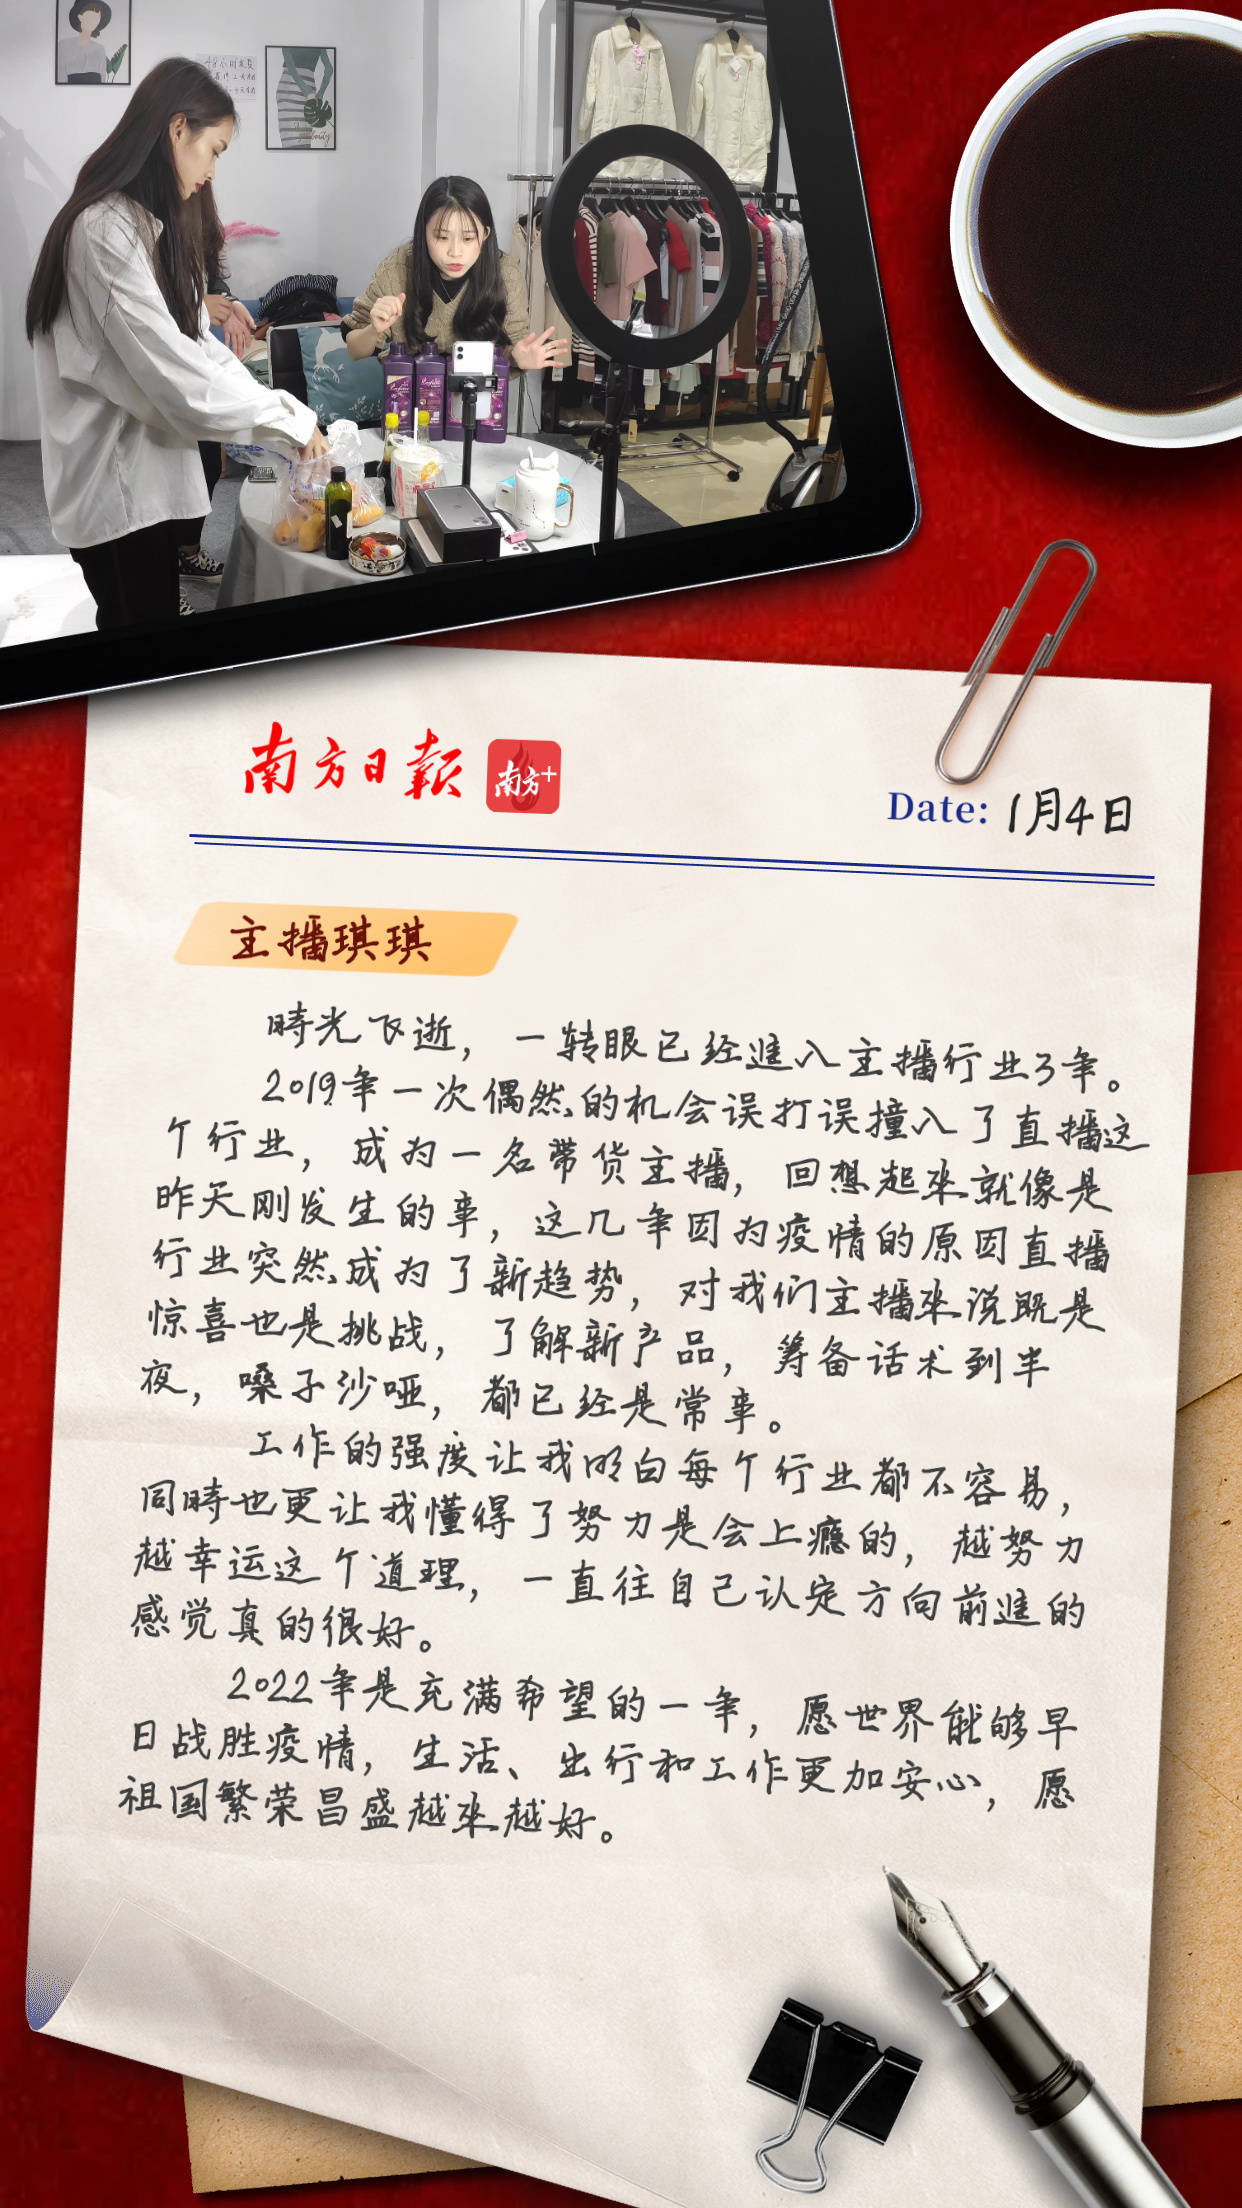 南方日报
南方+
Date: 1月4日
主播琪琪
時光飞逝，一转眼已经進入主播行业3年。
2019年一次偶然的机会误打误撞入了直播这
个行业，成为一名带货主播，回想起来就像是
昨天刚发生的事，这几年因为疫情的原因直播
行业突然成为了新趋势，对我们主播来说既是
惊喜也是挑战，了解新产品，筹备话术到半
夜，嗓子沙哑，都已经是常事。
工作的强度让我明白每个行业都不容易，
同時也更让我懂得了努力是会上瘾的，越努力
越幸运这个道理，一直往自己认定方向前進的
感觉真的很好。
2022年是充满希望的一年，愿世界能够早
日战胜疫情，生活、出行和工作更加安心，愿
祖国繁荣昌盛越来越好。